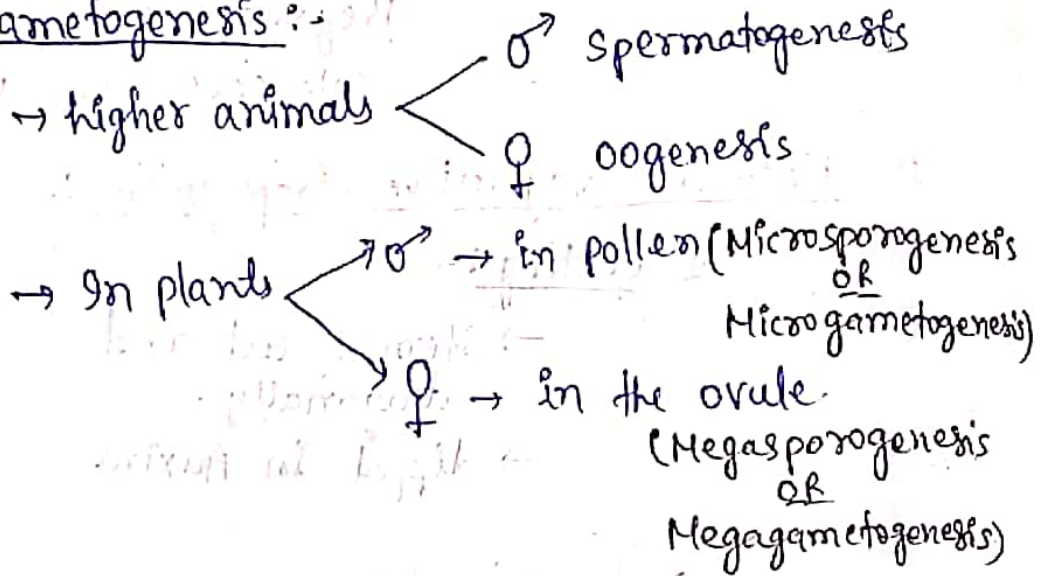 ametogenesis :-
→ higher animals < ♂ spermatogenesis
♀ oogenesis
→ In plants ♂ → in pollen (Microsporogenesis
OR
Microgametogenesis)
♀ → in the ovule.
(Megasporogenesis
OR
Megagametogenesis)